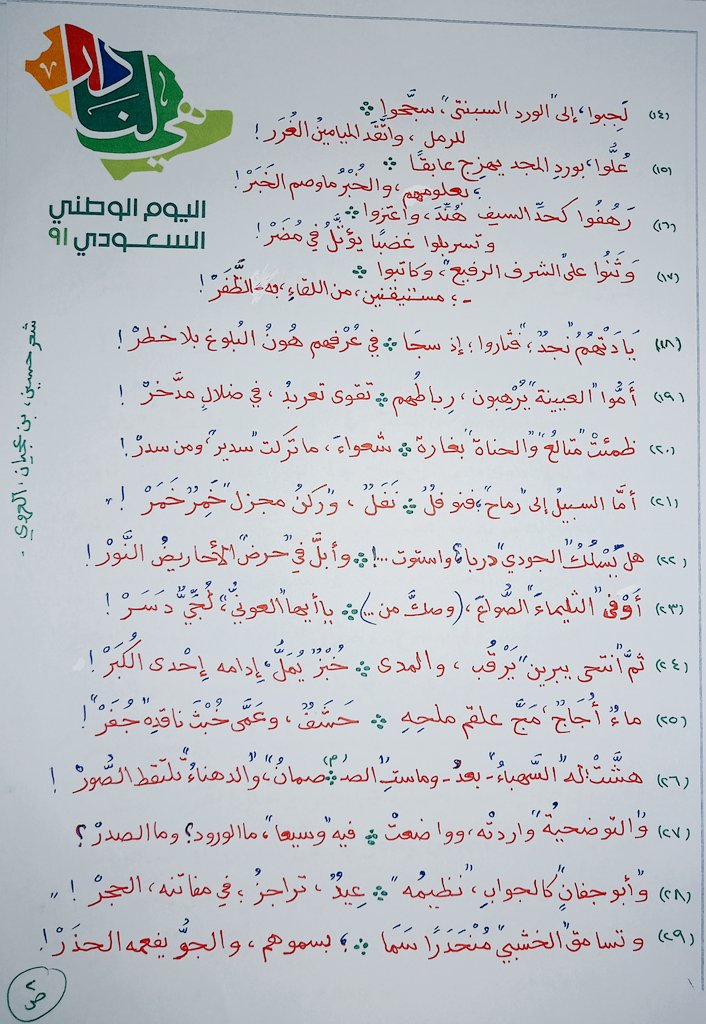 هي لنا دار
اليوم الوطني
السعودي ٩١
(١٤) لَجِبوا، إلى "الورد السبنتى"، سبَّحوا
للرمل، واتَّقَد الميامينُ الغُرَر!
(١٥) عُلُّوا، بوردِ المجد يهزج عابقًا
؛ بعلومهم، والخُبْرُ ما وصم الخَبَرْ!
(١٦) رَهُفُوا كحدِّ السيف هُنِّدَ، واعتزوا
وتسربلوا غضبًا يؤثَّلُ في مُضَرْ!
(١٧) وَثَنُوا على "الشرف الرفيع"، وكاتبوا
؛ مستيقنين، من اللقاءِ، به - الظَّفَرْ!
(١٨) يَا دَتْهُمُ "نجدُ"؛ فثاروا؛ إذ سجَا في عُرْفهم هونُ البُلوغ بلا خطرْ!
(١٩) أمُّوا "العيينة" يُرْهِبون، رباطُهم تقوى تعربدُ، في ضلالِ مدَّخرْ!
(٢٠) ظمئتْ "متالعُ" و"الحناة" بغارة شعواءَ، ما تركت "سدير"، ومن سدرْ!
(٢١) أمَّا السبيلُ إلى "رماح"؛ فنوفلُ نَفَلُ، ورُكنُ مجزل "خَمِرُ" خَمَرْ!
(٢٢) هل يُسْلَكُ "الجودي" دربا، واستوت..! وأبلَّ في "حرض" الأحاريضُ النَّوْرْ!
(٢٣) أوْفى "الثليماءَ" الصُّوائحَ، (وصكَّ من...) يا أيها "العونيُّ"، لُجِّيُّ دَسَرْ!
(٢٤) ثمَّ انتحى "يبرين" يَرْقُب، والمدى خُبْزُ يُمَلُّ، إدامه إحْدى الكُبَرْ!
(٢٥) ماءُ أُجَاجُ، مَجَّ علقم ملحِهِ حَشَفُ، وعَمَّى خُبْثَ ناقدِه "جُفَرْ"!
(٢٦) هشَّتْ له "السَّهباءُ" - بعدُ - وماستِ الصـ (م) صمانُ"، و"الدهناءُ" تلتقط الصُّورْ!
(٢٧) و"التوضحيةُ" واردته، وواضعتْ فيه "وسيعا"، ما الورود؟ وما الصدرْ؟
(٢٨) و"أبو جفانٍ" كالجوابِ، "نظيمُه" عِيدُ، تراجزُ؛ في مفاتنه، الحجرْ!
(٢٩) وتسامق "الخشبي" مُنْحَدَرًا سَمَا ؛ بسموهم، والجوُّ يفعمه الحذَرْ!
شعر حسين، بن نجيان، الجروي -
ص ٢